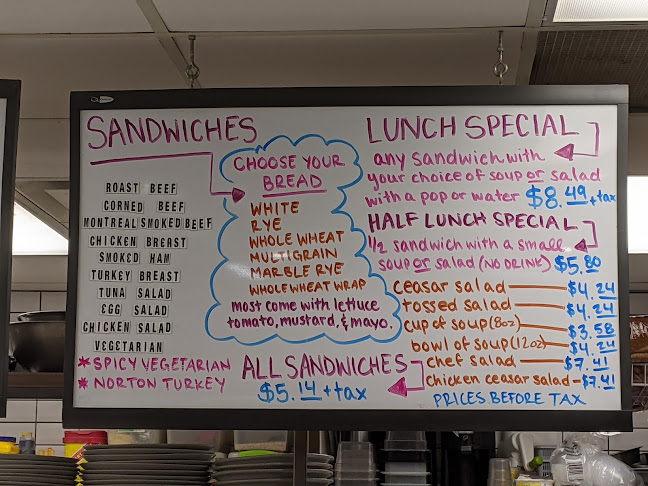 SANDWICHES
ROAST BEEF
CORNED BEEF
MONTREAL SMOKED BEEF
CHICKEN BREAST
SMOKED HAM
TURKEY BREAST
TUNA SALAD
EGG SALAD
CHICKEN SALAD
VEGETARIAN
* SPICY VEGETARIAN
* NORTON TURKEY
CHOOSE YOUR
BREAD
WHITE
RYE
WHOLE WHEAT
MULTIGRAIN
MARBLE RYE
WHOLE WHEAT WRAP
most come with lettuce
tomato, mustard, & mayo.
ALL SANDWICHES
$5.14 + tax
LUNCH SPECIAL
any sandwich with
your choice of soup or salad
with a pop or water $8.49 + tax
HALF LUNCH SPECIAL
1/2 sandwich with a small
soup or salad (NO DRINK) $5.80
ceasar salad — $4.24
tossed salad — $4.24
cup of soup (8oz) — $3.58
bowl of soup (12oz) — $4.24
chef salad — $7.41
chicken ceasar salad - $7.41
PRICES BEFORE TAX